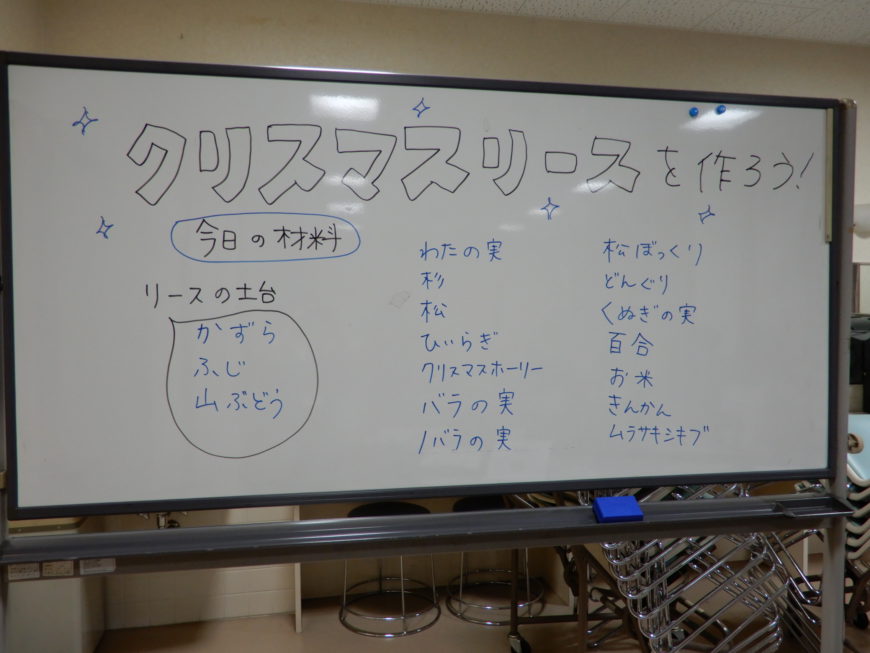 クリスマスリースを作ろう!
今日の材料
リースの土台
かずら
ふじ
山ぶどう
わたの実
杉
松
ひいらぎ
クリスマスホーリー
バラの実
ノバラの実
松ぼっくり
どんぐり
くぬぎの実
百合
お米
きんかん
ムラサキシキブ